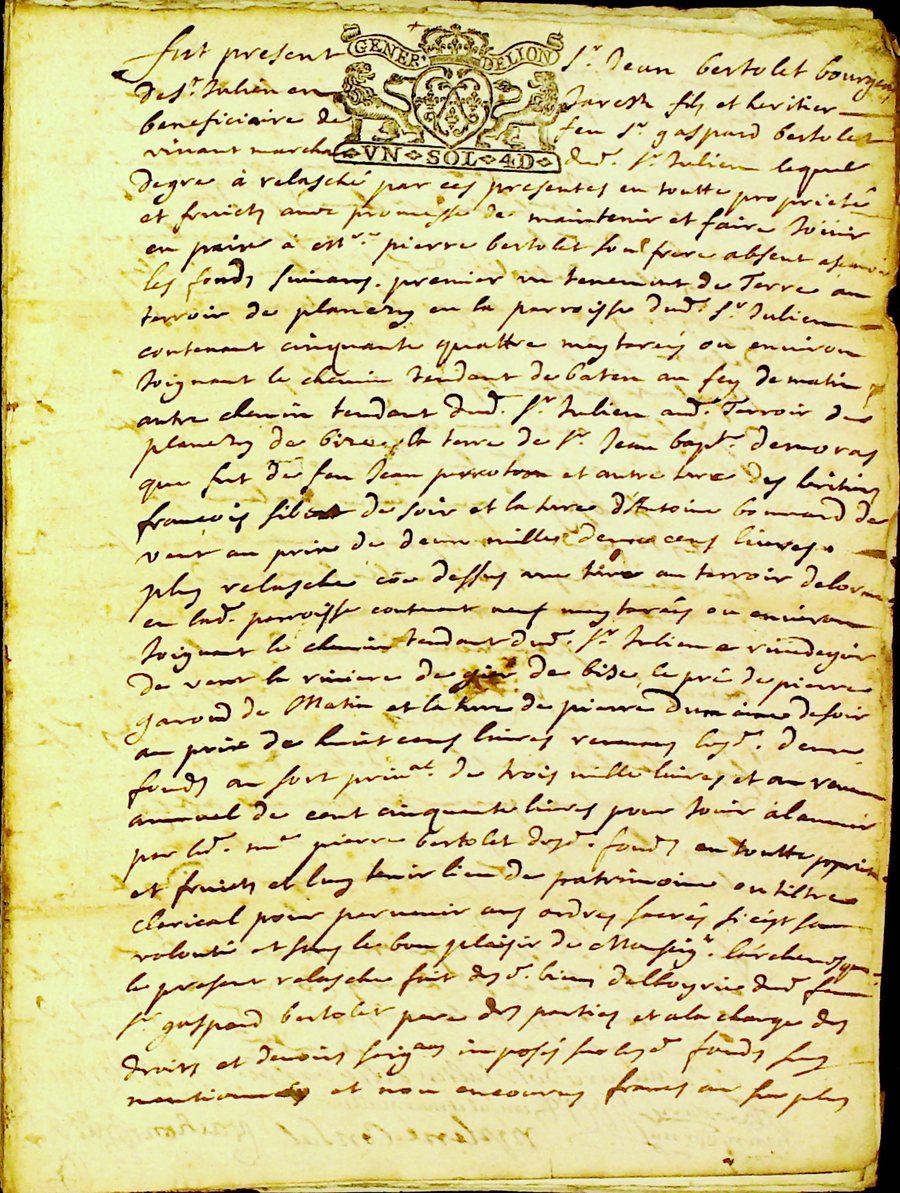 GENER. DELION
VN SOL 4D
fut present Sr. Jean bertolet bourgeois
de St. Julien en Jarestz filz et heritier
beneficiaire de feu Sr. gaspard bertolet
vivant marcha dud. St. Julien lequel
degre à relasché par ces presentes en toutte proprieté
et fruictz avec promesse de maintenir et faire Joüir
en paix à Mre. pierre bertolet son frere absent
les fondz suivans. premier un tenement de Terre au
terroir de planezy en la parroisse dud. St. Julien
contenant cinquante quattre meyterées ou environ
Joignant le chemin tendant de au de matin
autre chemin tendant dud. St. Julien aud. Terroir de
planezy de bize, la terre de Sr. Jean bapt. demoras
que fut de feu Jean et autre terre des heritiers
francois de soir et la terre d'Antoine bonnard de
vent au prix de deux milles deux cens livres.
plus relasche cõe dessus une terre au terroir de
en lad. parroisse contenant neuf meyterées ou environ
Joignant le chemin tendant dud. St. Julien a
de vent la riviere de gier de bize, le pré de pierre
garond de Matin et la terre de pierre de soir
au prix de huict cens livres revenans lesd. deux
fondz au sort prinal. de trois mille livres et au revenu
annuel de cent cinquante livres pour Joüir à lavenir
par led. Mre pierre bertolet desd. fondz en toutte proprieté
et fruictz et luy tenir lieu de patrimoine ou tiltre
clerical pour parvenir aux ordres sacrés si c'est sa
volonté et sous le bon plaisir de Monseigr. l'archevesque
le present relasche fait desd. biens de lhoyrie dud feu
Sr gaspard bertolet pere des parties et a la charge des
droits et devoirs seigaux imposés sur lesd fondz sus
mentionnés et non encourus francs au surplus